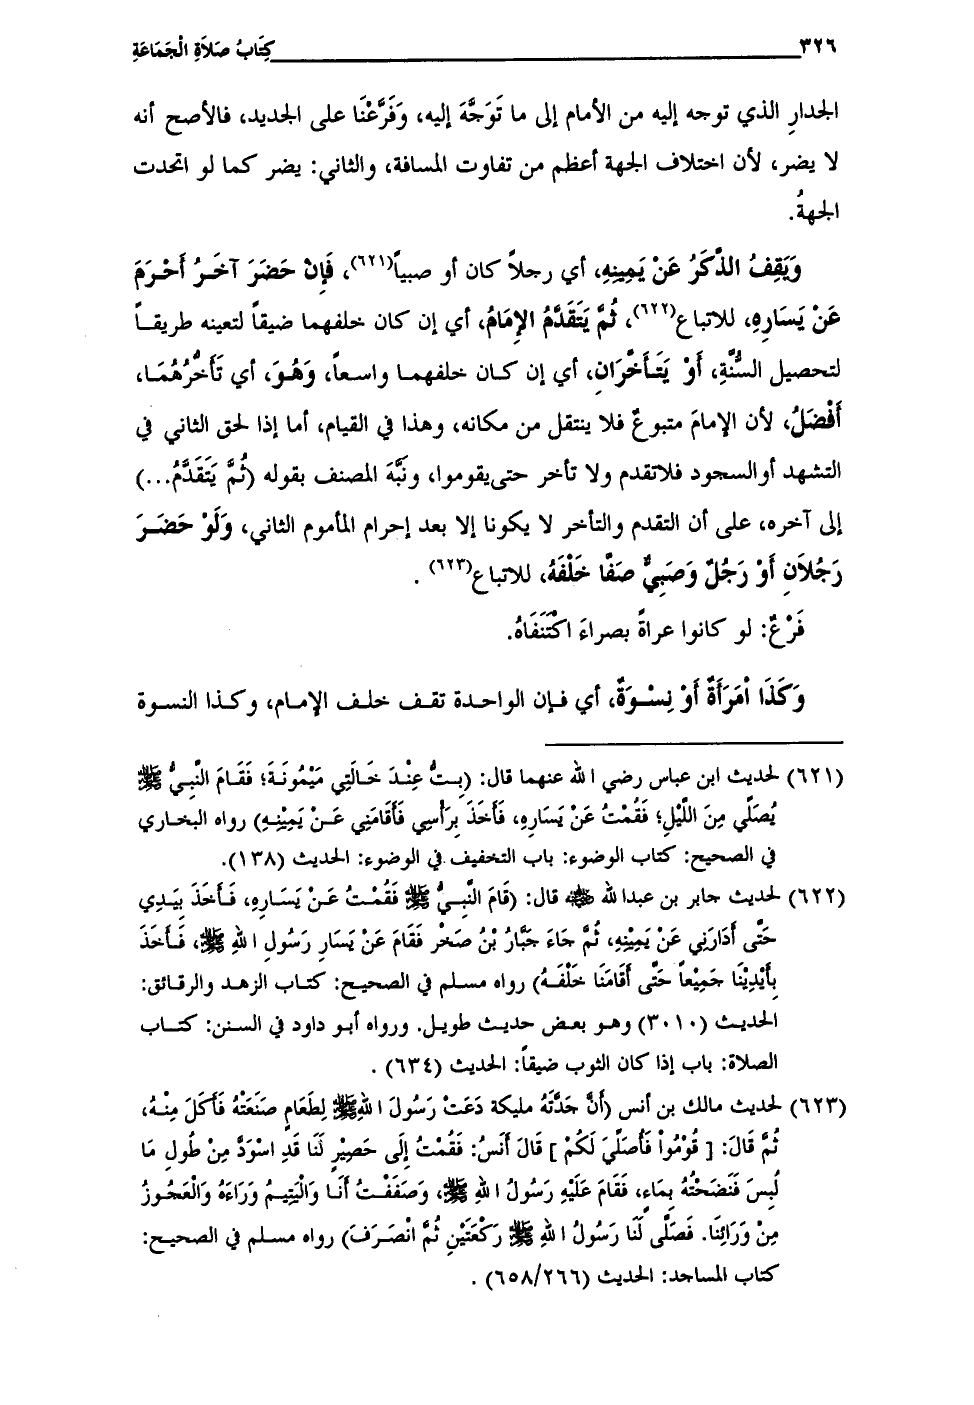 ٣٢٦ كِتَابُ صَلاَةِ الْجَمَاعَةِ
الجدارِ الذي توجه إليه من الأمام إلى ما تَوَجَّهَ إليه، وَفَرَّعْنَا على الجديد، فالأصح أنه
لا يضر، لأن اختلاف الجهة أعظم من تفاوت المسافة، والثاني: يضر كما لو اتحدت
الجهةُ.
وَيَقِفُ الذَّكَرُ عَنْ يَمِينِهِ، أي رجلاً كان أو صبياً(٦٢١)، فَإِنْ حَضَرَ آخَرُ أَحْرَمَ
عَنْ يَسَارِهِ، للاتباع(٦٢٢)، ثُمَّ يَتَقَدَّمُ الإِمَامُ، أي إن كان خلفهما ضيقاً لتعينه طريقاً
لتحصيل السُّنَّةِ، أَوْ يَتَأَخَّرَانِ، أي إن كان خلفهما واسعاً، وَهُوَ، أي تَأَخُّرُهُمَا،
أَفْضَلُ، لأن الإمامَ متبوعٌ فلا ينتقل من مكانه، وهذا في القيام، أما إذا لحق الثاني في
التشهد أوالسجود فلاتقدم ولا تأخر حتى‌يقوموا، ونَبَّهَ المصنف بقوله (ثُمَّ يَتَقَدَّمُ...)
إلى آخره، على أن التقدم والتأخر لا يكونا إلا بعد إحرام المأموم الثاني، وَلَوْ حَضَرَ
رَجُلاَنِ أَوْ رَجُلٌ وَصَبِيٌّ صَفَّا خَلْفَهُ، للاتباع(٦٢٣) .
فَرْعٌ: لو كانوا عراةً بصراءَ اكْتَنَفَاهُ.
وَكَذَا امْرَأَةٌ أَوْ نِسْوَةٌ، أي فإن الواحدة تقف خلف الإمام، وكذا النسوة
(٦٢١) لحديث ابن عباس رضي الله عنهما قال: (بِتُّ عِنْدَ خَالَتِي مَيْمُونَةَ؛ فَقَامَ النَّبِيُّ ﷺ
يُصَلِّي مِنَ اللَّيْلِ؛ فَقُمْتُ عَنْ يَسَارِهِ، فَأَخَذَ بِرَأْسِي فَأَقَامَنِي عَنْ يَمِيْنِهِ) رواه البخاري
في الصحيح: كتاب الوضوء: باب التخفيف في الوضوء: الحديث (١٣٨).
(٦٢٢) لحديث جابر بن عبدالله ﷺ قال: (قَامَ النَّبِيُّ ﷺ فَقُمْتُ عَنْ يَسَارِهِ، فَأَخَذَ بِيَدِي
حَتَّى أَدَارَنِي عَنْ يَمِيْنِهِ، ثُمَّ جَاءَ جَبَّارُ بْنُ صَخْرٍ فَقَامَ عَنْ يَسَارِ رَسُولِ اللهِ ﷺ، فَأَخَذَ
بِأَيْدِيْنَا جَمِيْعاً حَتَّى أَقَامَنَا خَلْفَهُ) رواه مسلم في الصحيح: كتاب الزهد والرقائق:
الحديث (٣٠١٠) وهو بعض حديث طويل. ورواه أبو داود في السنن: كتاب
الصلاة: باب إذا كان الثوب ضيقاً: الحديث (٦٣٤) .
(٦٢٣) لحديث مالك بن أنس (أَنَّ جَدَّتَهُ مليكة دَعَتْ رَسُولَ اللهِ ﷺ لِطَعَامٍ صَنَعَتْهُ فَأَكَلَ مِنْهُ،
ثُمَّ قَالَ: [ قُوْمُواْ فَأُصَلِّيَ لَكُمْ ] قَالَ أَنَسُ: فَقُمْتُ إِلَى حَصِيْرٍ لَنَا قَدِ اسْوَدَّ مِنْ طُولِ مَا
لُبِسَ فَنَضَحْتُهُ بِمَاءٍ، فَقَامَ عَلَيْهِ رَسُولُ اللهِ ﷺ، وَصَفَفْتُ أَنَا وَالْيَتِيمُ وَرَاءَهُ وَالْعَجُوزُ
مِنْ وَرَائِنَا. فَصَلَّى لَنَا رَسُولُ اللهِ ﷺ رَكْعَتَيْنِ ثُمَّ انْصَرَفَ) رواه مسلم في الصحيح:
كتاب المساجد: الحديث (٦٥٨/٢٦٦) .